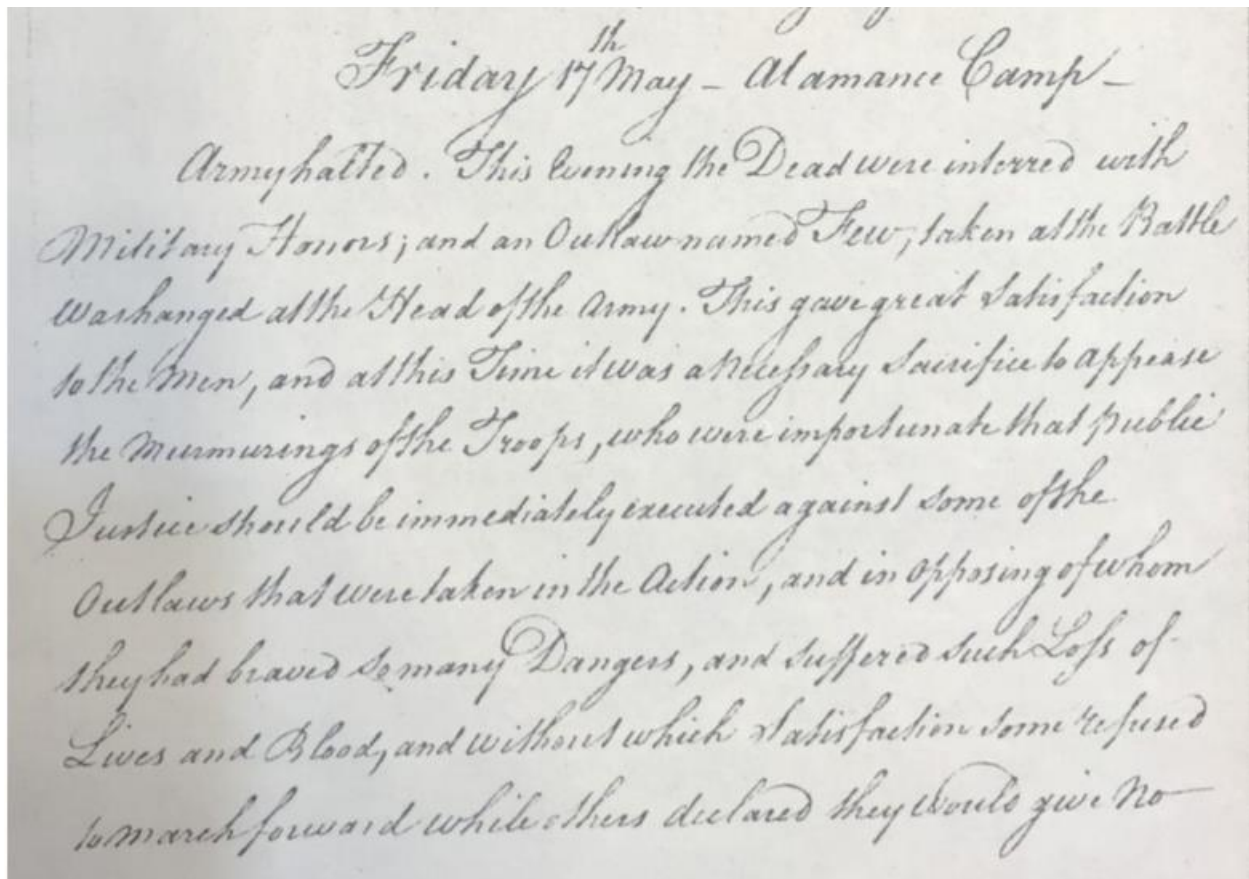 Friday 17th May - Alamance Camp -
Army halted. This Evening the Dead were interred with
Military Honors; and an Outlaw named Few, taken at the Battle
was hanged at the Head of the Army. This gave great Satisfaction
to the Men, and at this Time it was a Necessary Sacrifice to appease
the Murmurings of the Troops, who were importunate that public
Justice should be immediately executed against some of the
Outlaws that were taken in the Action, and in opposing of whom
they had braved so many Dangers, and suffered such Loss of
Lives and Blood, and without which Satisfaction some refused
to march forward while others declared they would give no